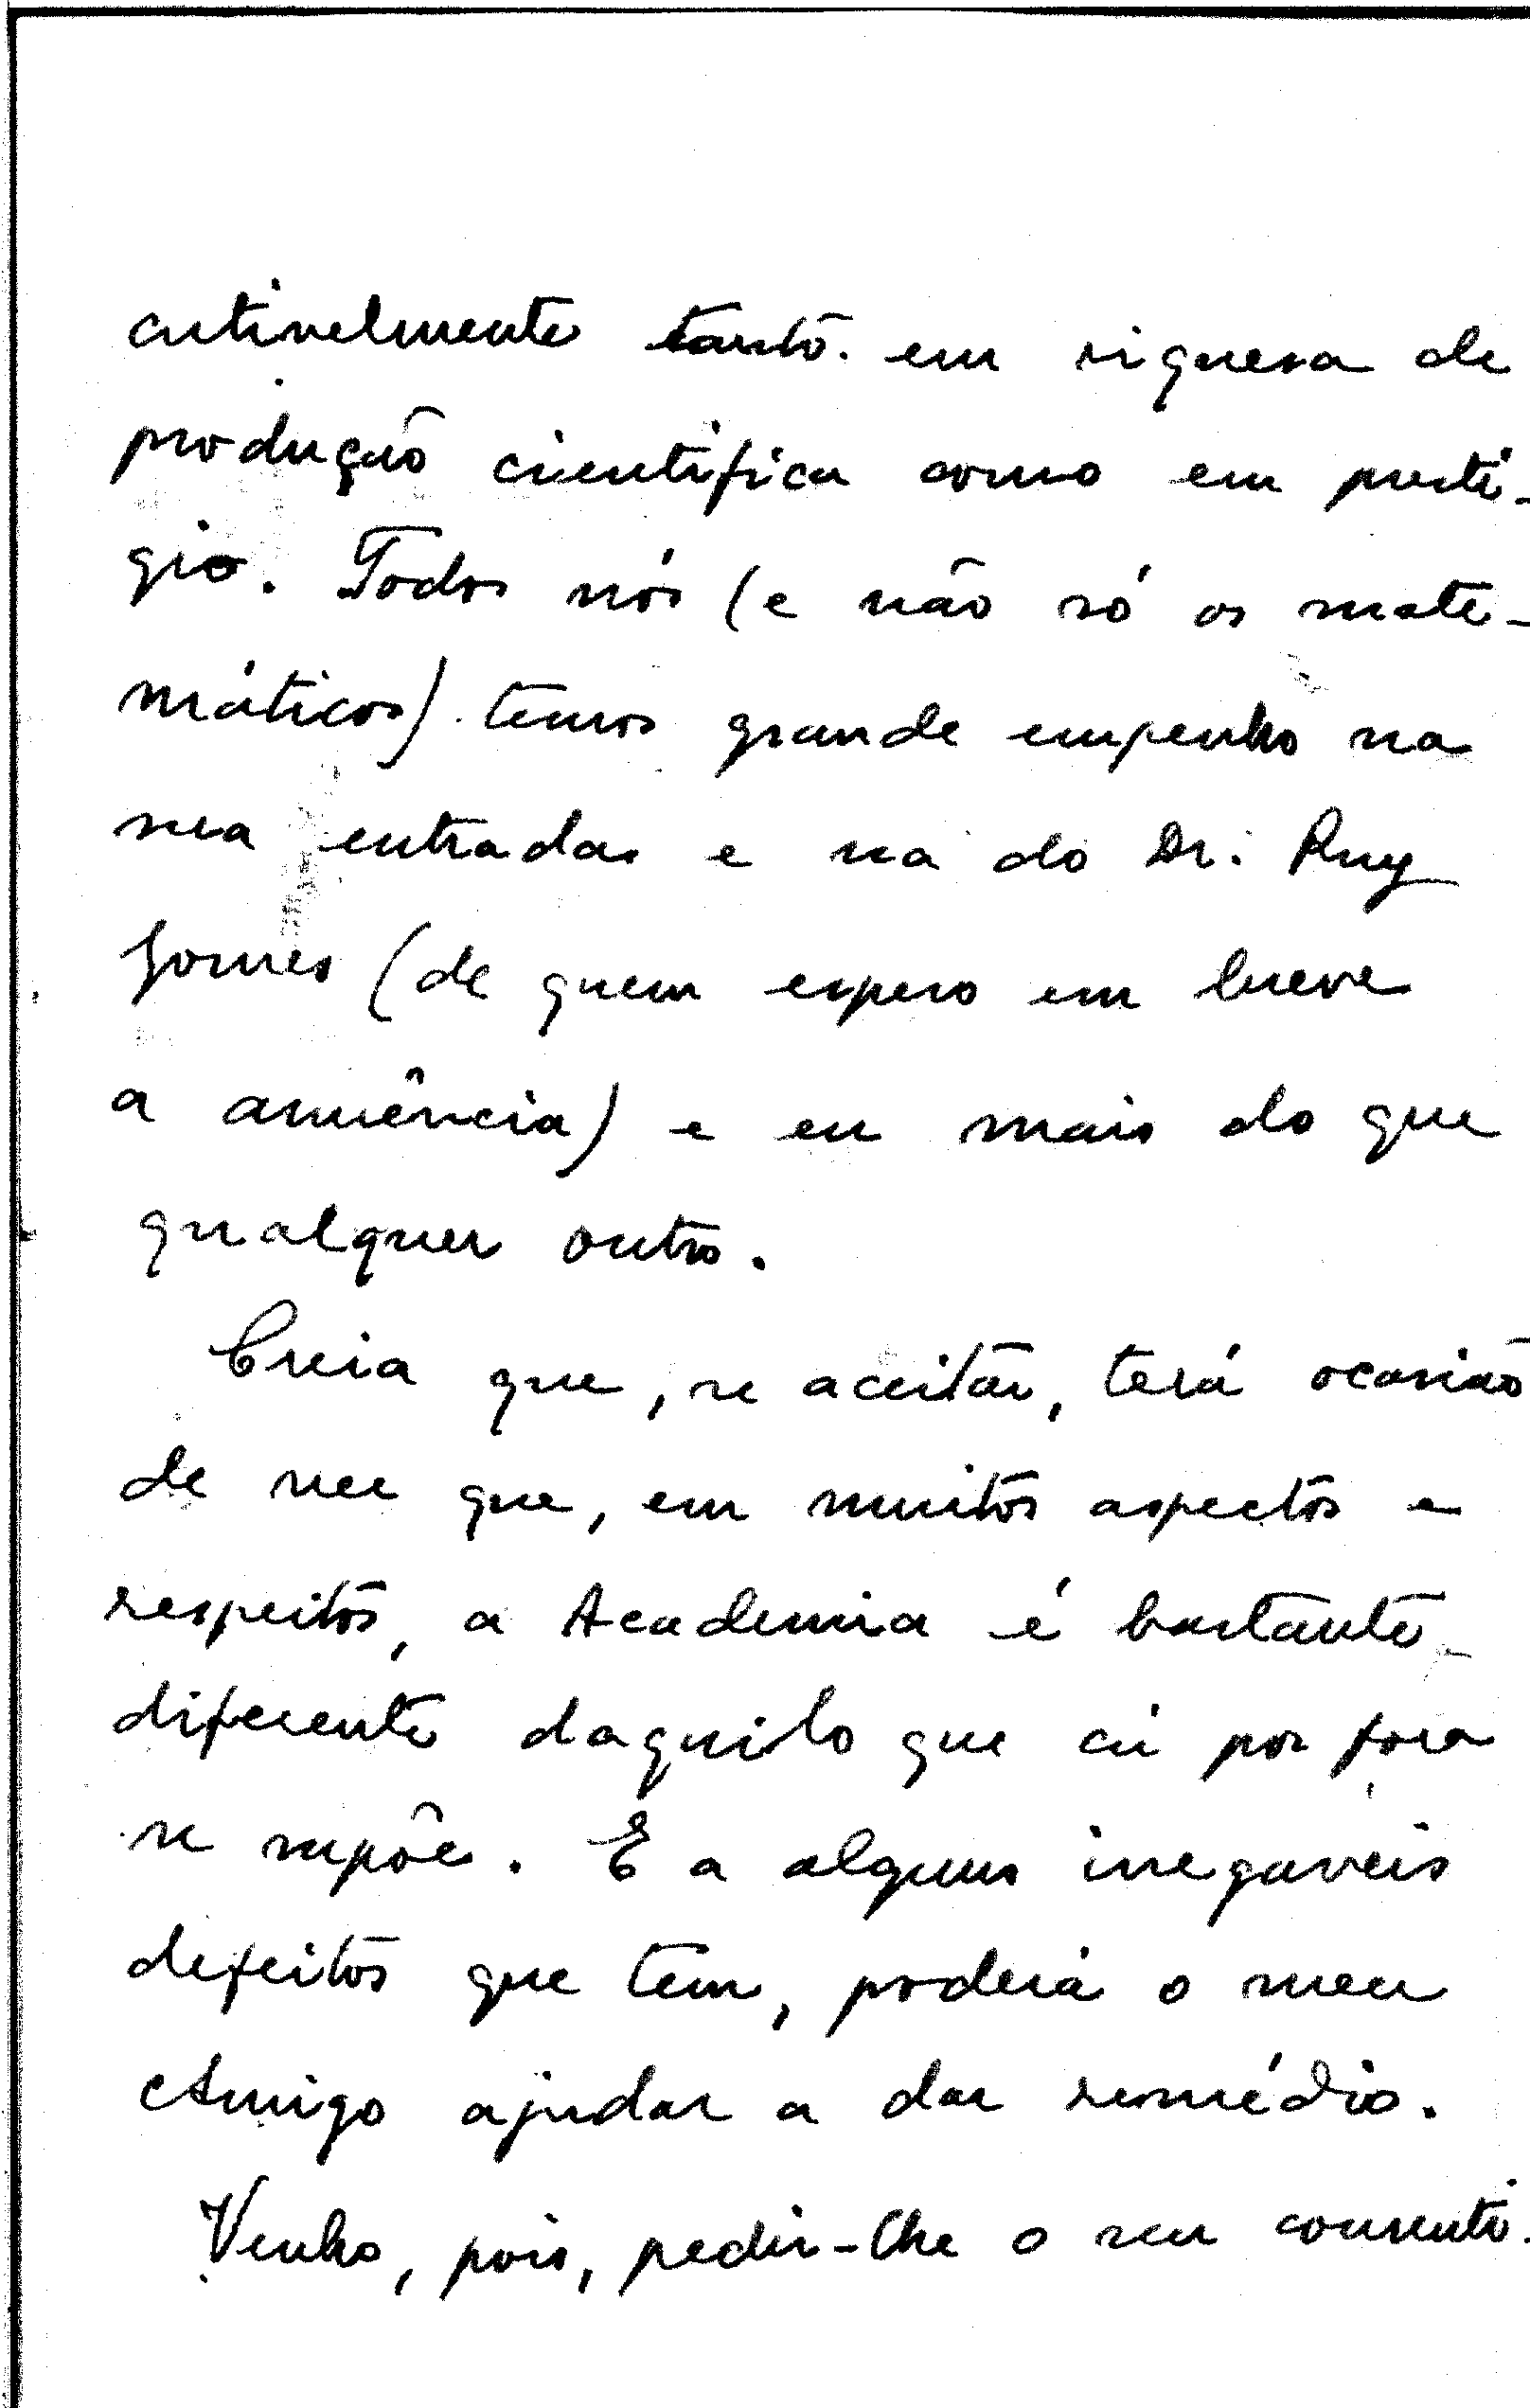 cutivelmente tanto em riquesa de
produção cientifica como em presti-
gio. Todos nós (e não só os mate-
máticos) temos grande empenho na
sua entrada e na do Dr. Ruy
Gomes (de quem espero em breve
a anuência) e eu mais do que
qualquer outro.
Creia que, se aceitar, terá ocasião
de ver que, em muitos aspectos e
respeitos, a Academia é bastante
diferente daquilo que ai por fora
se supõe. E a alguns inegaveis
defeitos que tem, poderá o meu
Amigo ajudar a dar remédio.
Venho, pois, pedir-lhe o seu consenti-